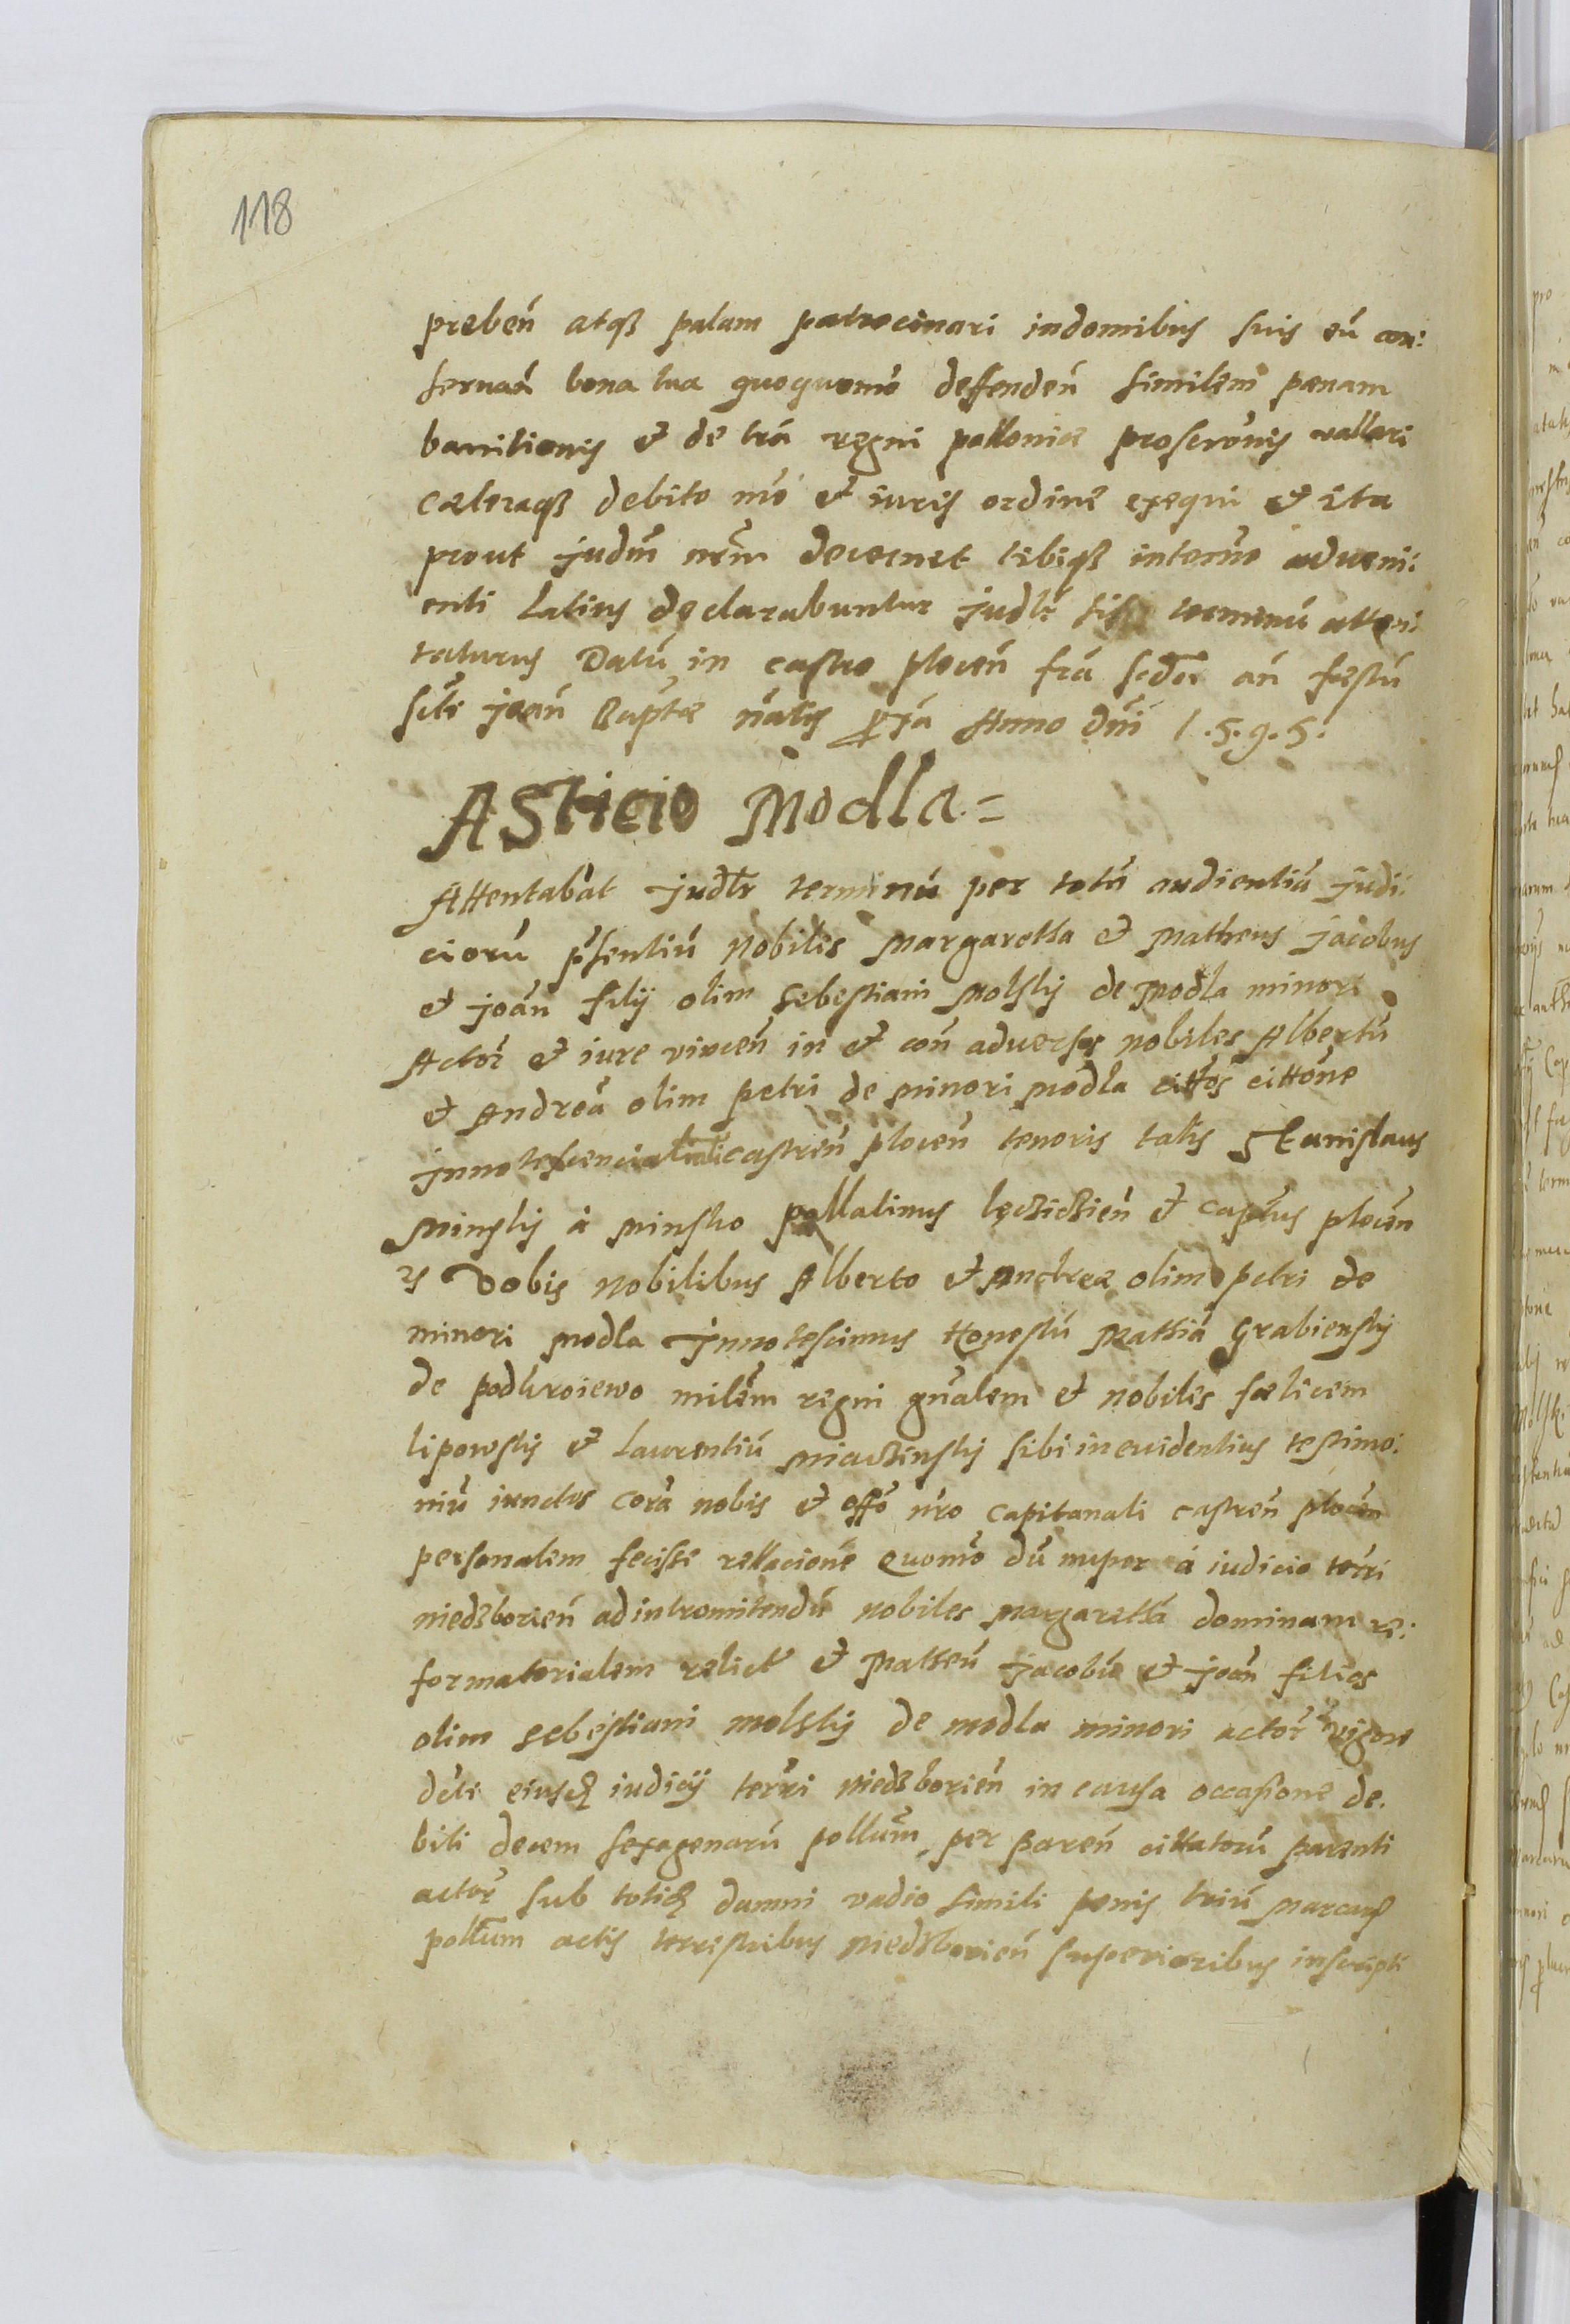 118
preben̄ atqꝫ palam patrocinari indomibus suis eū con:
seruan̄ bona tua quoquomō deffenden̄ similem pænam
banitionis et de trā regni polloniæ proscrōnis vallari
cæteraqꝫ debito mō et iuris ordine exequi et ita
prout judm̄ nr̄m decernet tibiqꝫ intermō adueni:
enti Latius declarabuntur judlr̄ tis terminū atten:
taturus Datū in castro plocen̄ fr̄a an̄ fæstū
scti joan̄ Baptæ nalis Anno dn̄i 1.5.9.5.
Asticio Modla =
Attentabāt judlr̄ terminū per totū audientiū judi:
ciorū pn̄sentiū Nobiles Margaretha et Matheus jacobus
et joān filij olim Sebestiani Molskij de Modla minori
Actor̄ et iure vincen̄ in et con̄ aduersos nobiles Albertū
et Andreā olim petri de Minori Modla cittōs cittōne
jnnotescenciali castren̄ plocen̄ tenoris talis Stanislaus
Minskij à Minsko pallatinus lęcziczien̄ et capn̄us plocen̄
Vobis Nobilibus Alberto et Andreæ olim petri de
minori Modla Jnnotescimus Honestū Mathiā Grabienskij
de podkroiewo milēm regni gn̄alem et Nobiles fælicem
lipowskij et Laurentiū Miaczinskij sibi in euidentius testimo:
niū iunctos corā nobis et offō nr̄o capitanali castren̄ plocen̄
personalem fecisse rellacionē Quomō dū nuper à iudicio terri
niedzborien̄ ad intromitendū nobiles Margarethā dominam re:
formatorialem relict̄ et Matheū Jacobū et joān filios
olim Sebestiani Molskij de modla minori actor̄ vigore
dcti eiusdꝫ iudicij terri Niedzborien̄ in causa occasione de.
biti decem sexagenarū pollm̄ per paren̄ cittatorū parenti
actor̄ sub totidꝫ damni vadio simili penis triū Marcarꝫ
pollm̄ actis terrestribus Niedzborien̄ superioribus inscripti